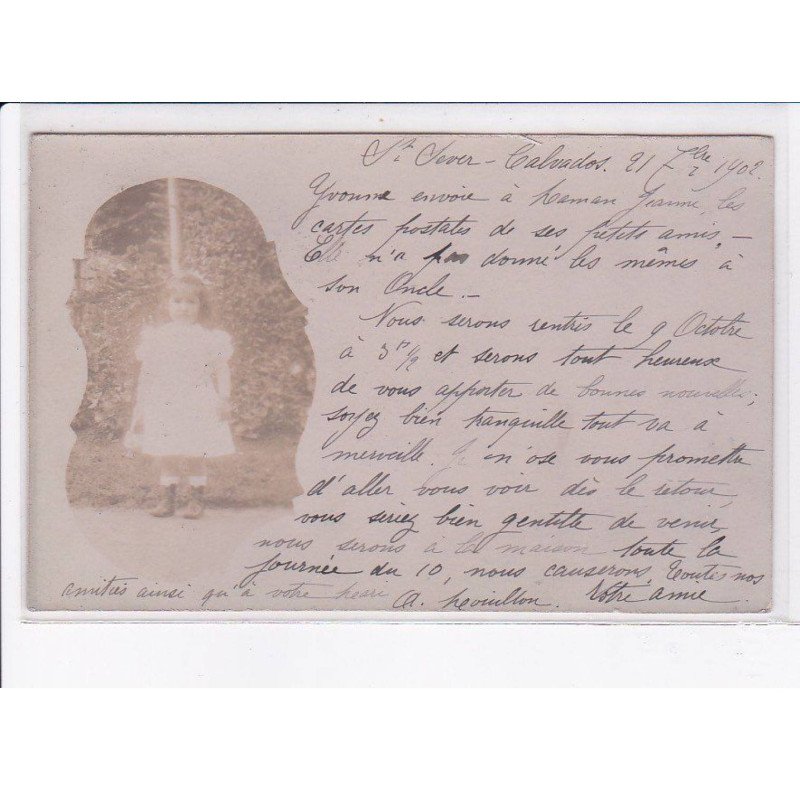 St Sever - Calvados. 21 7bre 1902.
Yvonne envoie à Maman Jeanne, les
cartes postales de ses petits amis -
Elle n'a pas donné les mêmes à
son Oncle. -
Nous serons rentrés le 9 Octobre
à 3h 1/2 et serons tout heureux
de vous apporter de bonnes nouvelles;
soyez bien tranquille tout va à
merveille. Je n'ose vous promettre
d'aller vous voir dès le retour,
vous seriez bien gentille de venir,
nous serons à la maison toute la
journée du 10, nous causerons. Toutes nos
amitiés ainsi qu'à votre Votre amie
A.